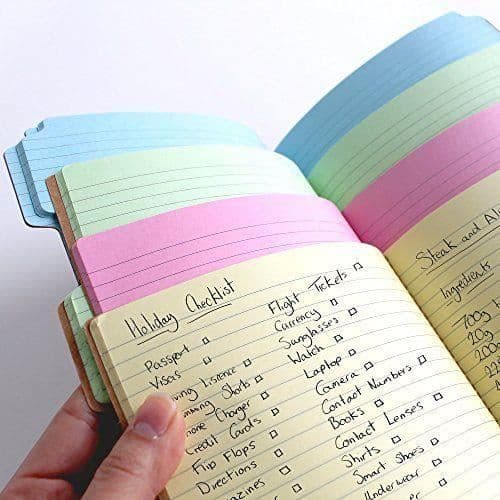 Holiday Checklist
Passport
Visas
Lisence
Shorts
Charger
Credit Cards
Flip Flops
Directions
Flight Tickets
Currency
Sunglasses
Watch
Laptop
Camera
Contact Numbers
Books
Contact Lenses
Shirts
Smart Shoes
Underwear
Steak and
Ingredients
700g
20g
200g